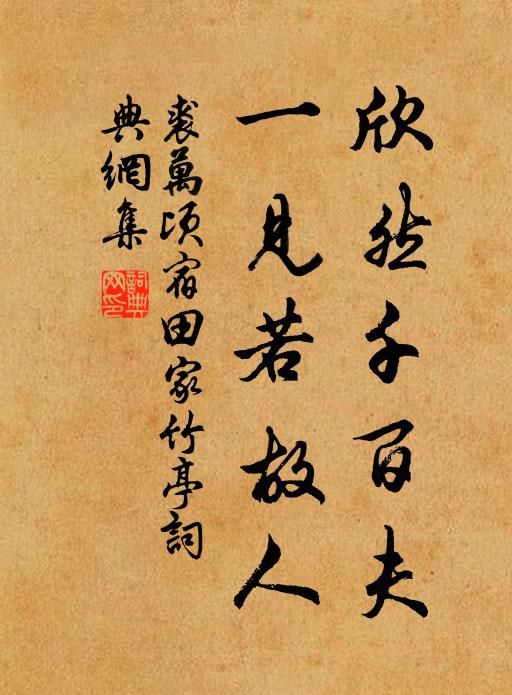 欣然千百夫
一見若故人
裘萬頃宿田家竹亭詞
典網集
詞典網印